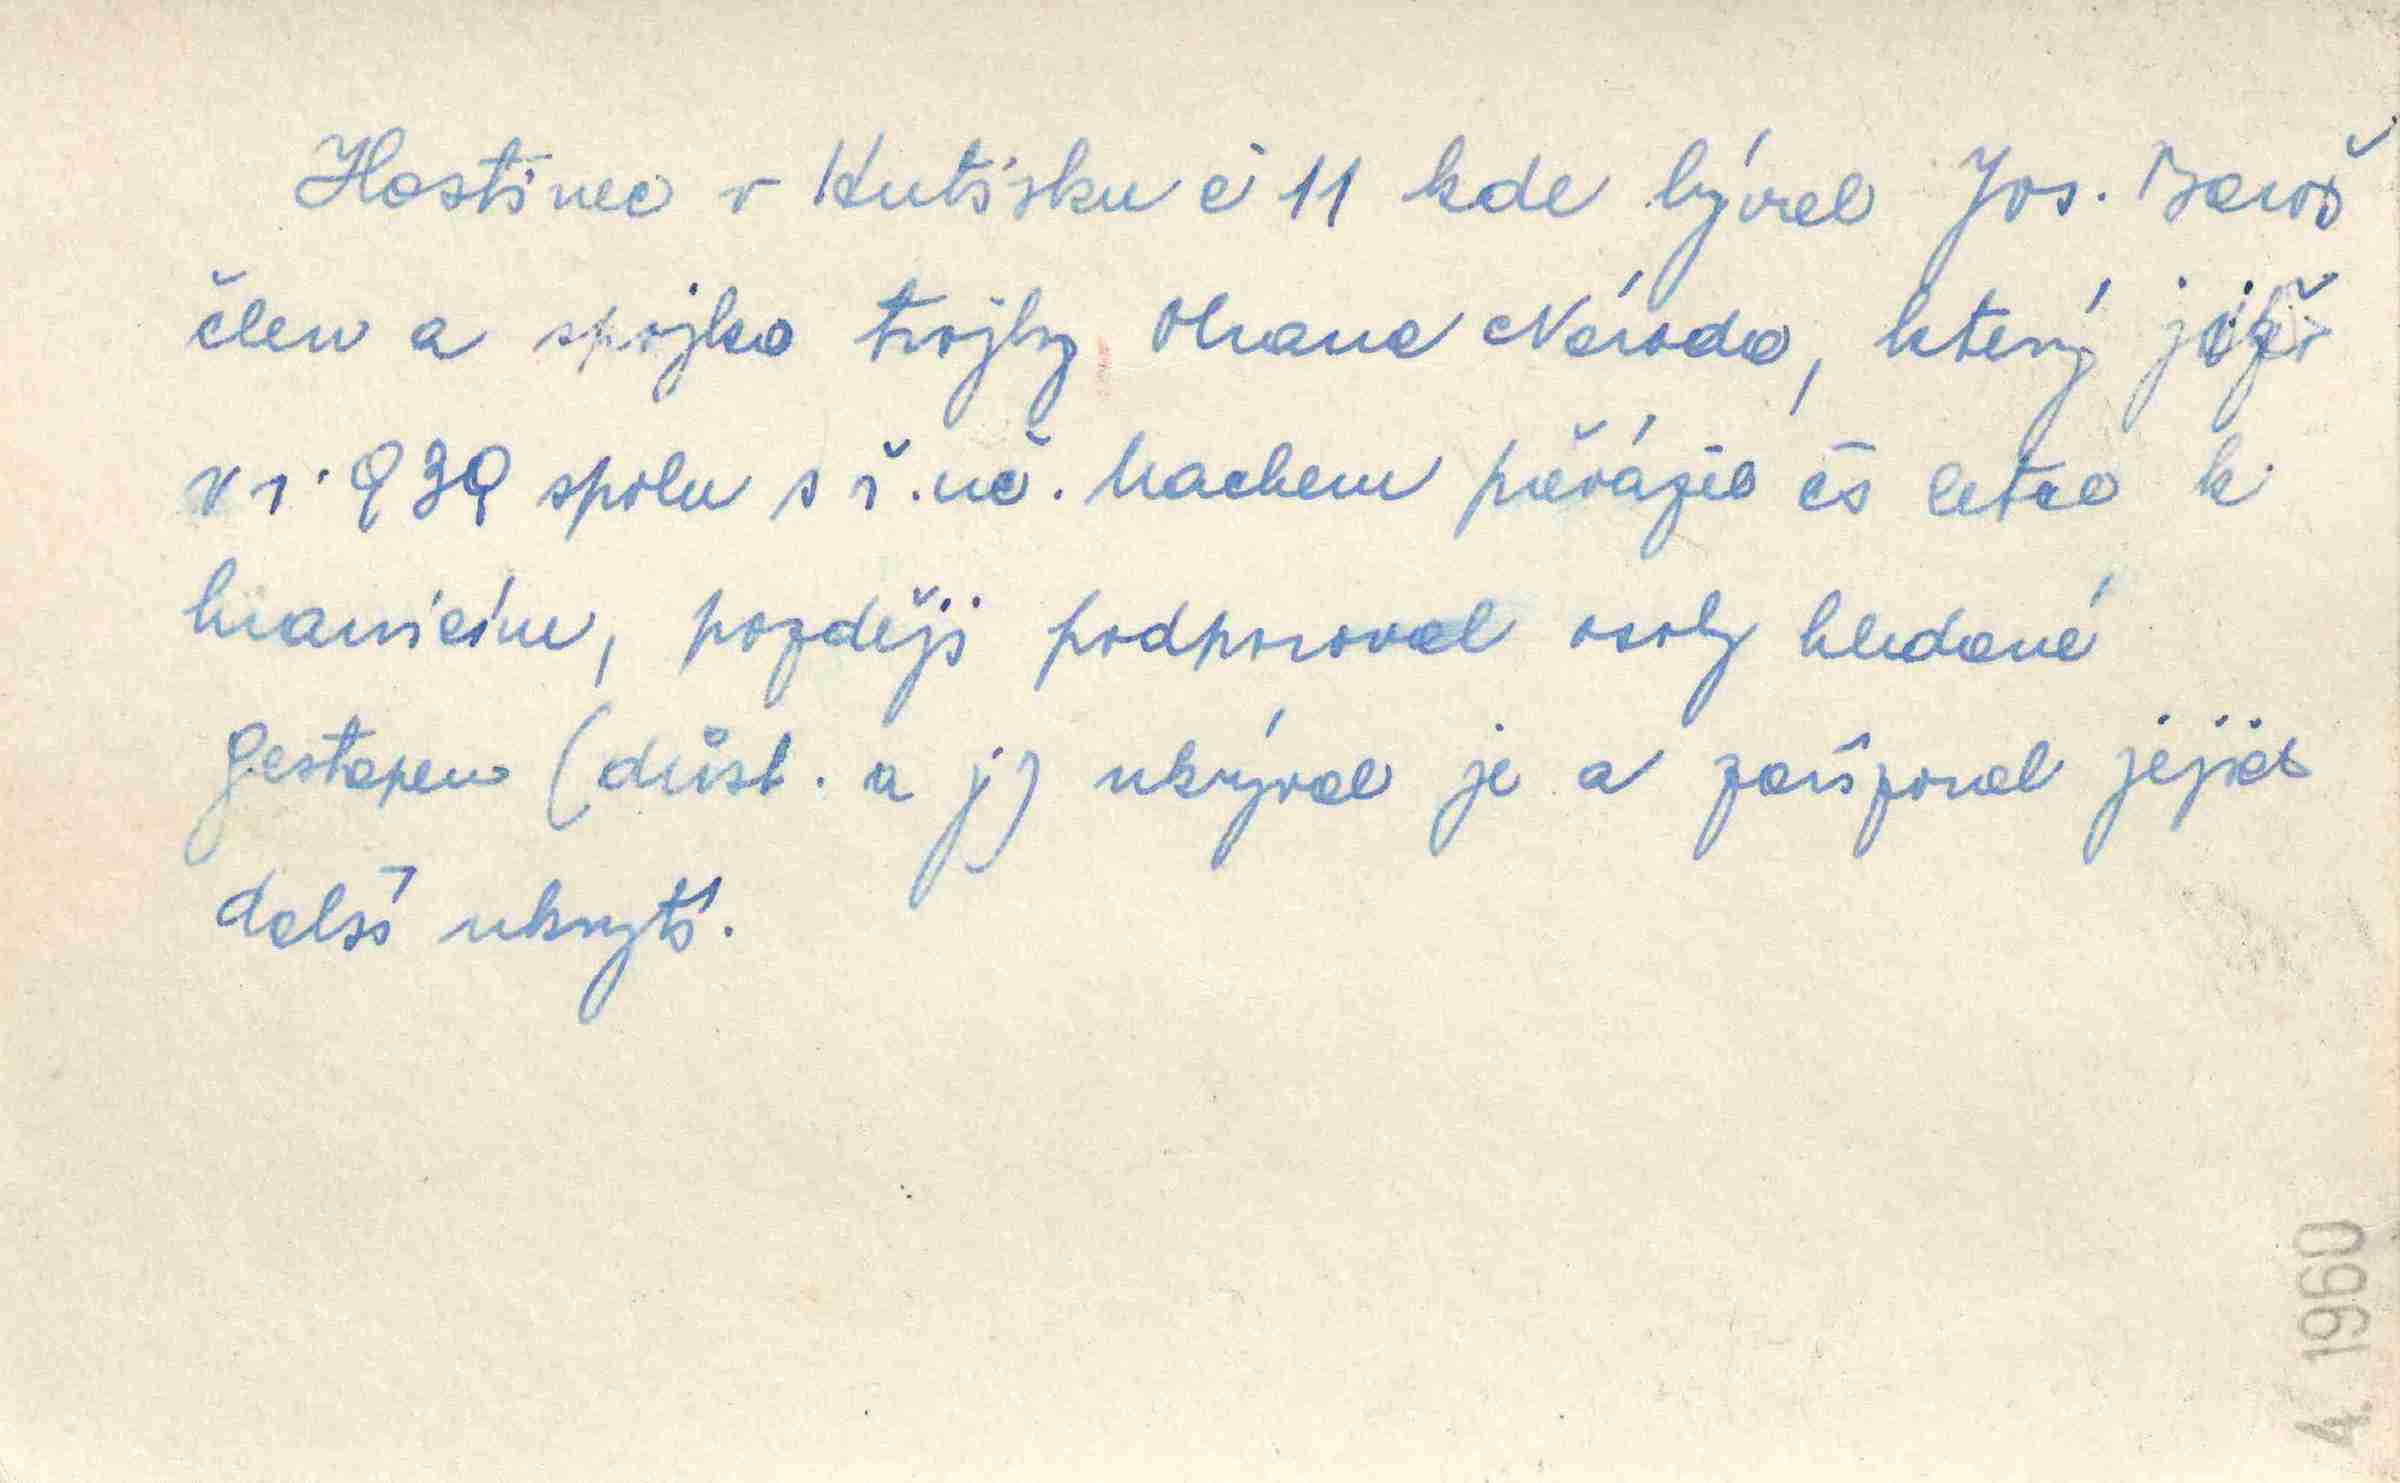 Hostinec v Hutisku č 11 kde býval Jos. Baroš
člen a spojka trojky Obrana Národa, který již
v r. 939 spolu s ř. uč. Machem převázel čs letce k
hranicím, později podporoval osoby hledané
gestapem (důst. a j) ukrýval je a zaříz­oval jejich
další ukrytí.
4. 1960